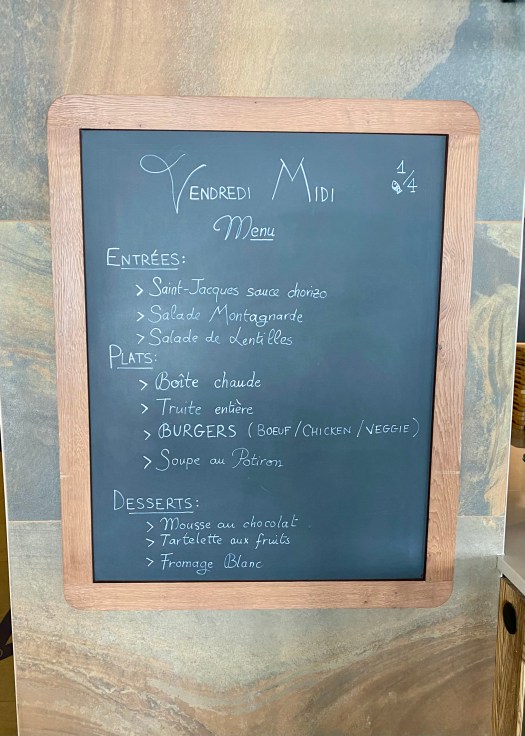 VENDREDI MIDI 1/4
Menu
ENTRÉES:
> Saint-Jacques sauce chorizo
> Salade Montagnarde
> Salade de Lentilles
PLATS:
> Boîte chaude
> Truite entière
> BURGERS (BOEUF/CHICKEN/VEGGIE)
> Soupe au Potiron
DESSERTS:
> Mousse au chocolat
> Tartelette aux fruits
> Fromage Blanc